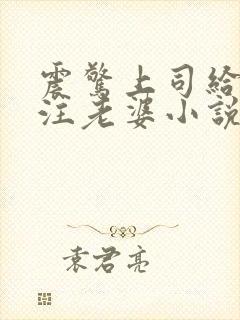 震驚上司給
注老婆小說
袁君亮